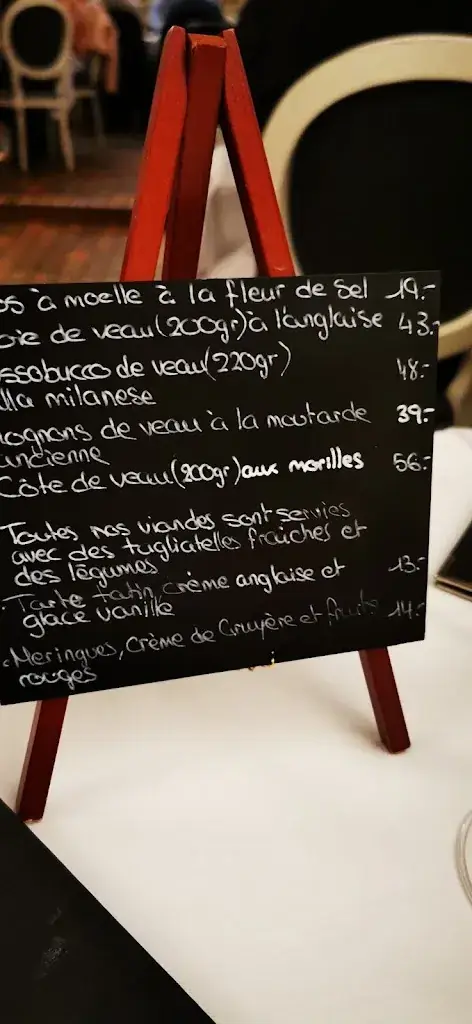 os à moelle à la fleur de sel 19.-
oie de veau (200gr) à l'anglaise 43.-
ssobucco de veau (220gr) 48.-
lla milanese
ognons de veau à la moutarde 39.-
ancienne
Côte de veau (200gr) aux morilles 56.-
Toutes nos viandes sont servies
avec des tagliatelles fraîches et
des légumes
• Tarte tatin crème anglaise et 13.-
glace vanille
• Meringues, crème de Gruyère et fruits 14.-
rouges